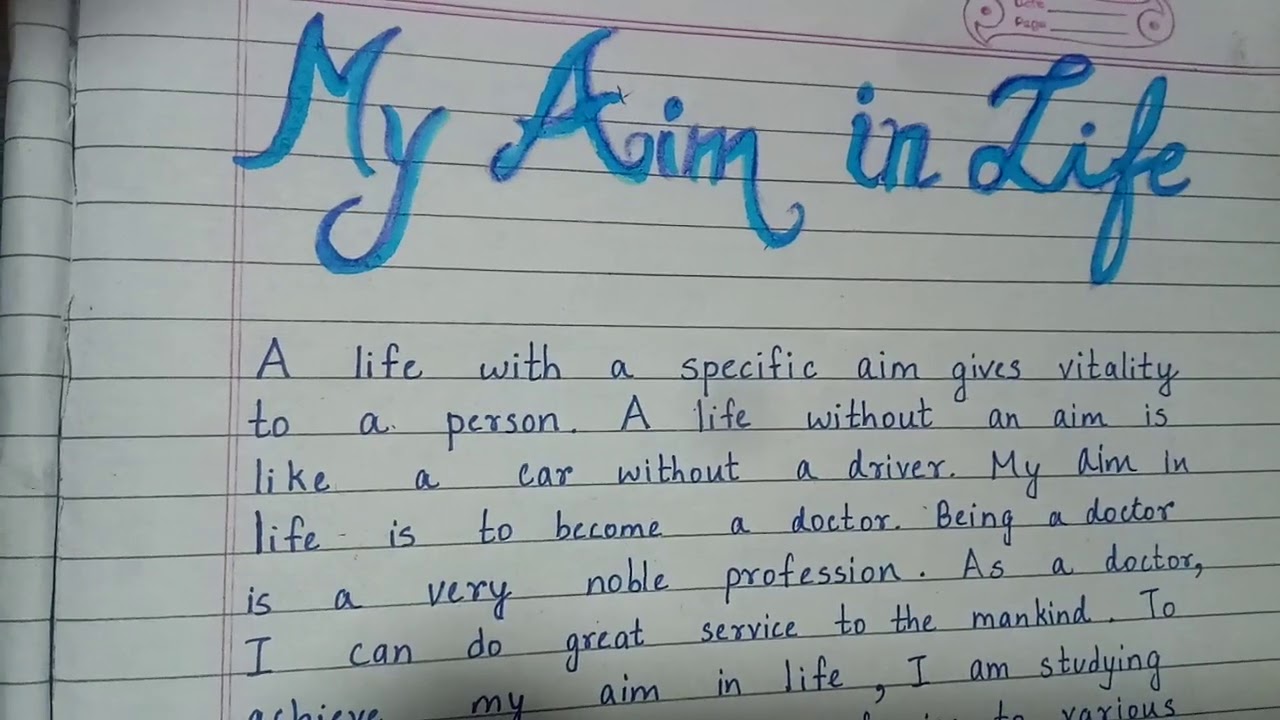 Date
Page
My Aim in Life
A life with a specific aim gives vitality
to a person. A life without an aim is
like a car without a driver. My aim in
life is to become a doctor. Being a doctor
is a very noble profession. As a doctor,
I can do great service to the mankind. To
achieve my aim in life, I am studying
to various